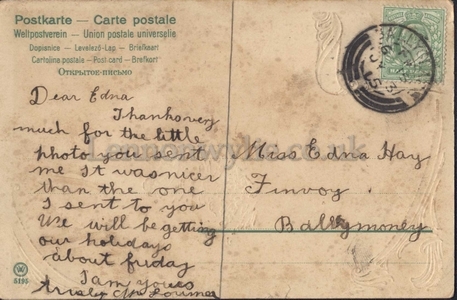 Postkarte — Carte postale
Weltpostverein — Union postale universelle
Dopisnice — Levelező-Lap — Briefkaart
Cartolina postale — Post-card — Brefkort
Открытое-письмо
Dear Edna
Thanks very
much for the little
photo you sent
me It was nicer
than the one
I sent to you
We will be getting
our holidays
about friday
I am yours
Miss Edna Hay
Finvoy
Ballymoney
5195